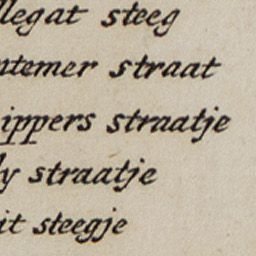 llegat steeg
ntemer straat
ippers straatje
y straatje
it steegje